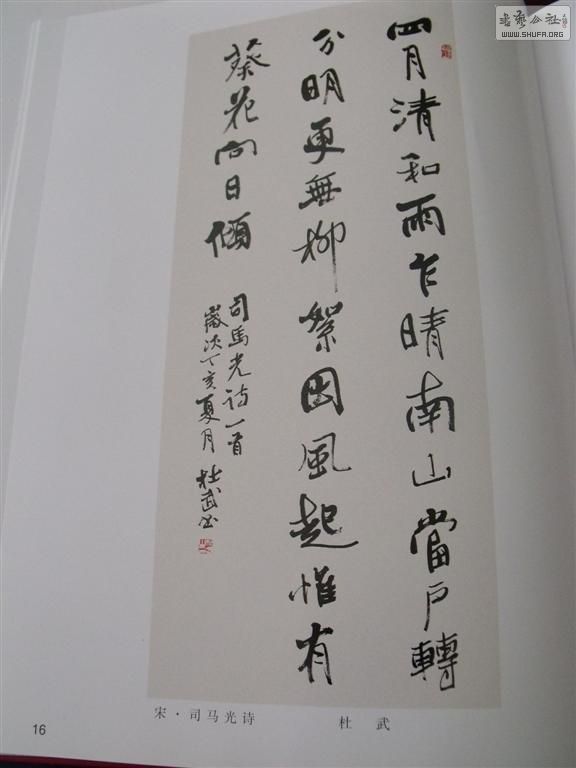 四月清和雨乍晴南山當戶轉
分明更無柳絮因風起惟有
葵花向日傾
司馬光诗一首
歲次丁亥夏月杜武书
宋·司马光诗
杜武
16
書艺公社
WWW.SHUFA.ORG